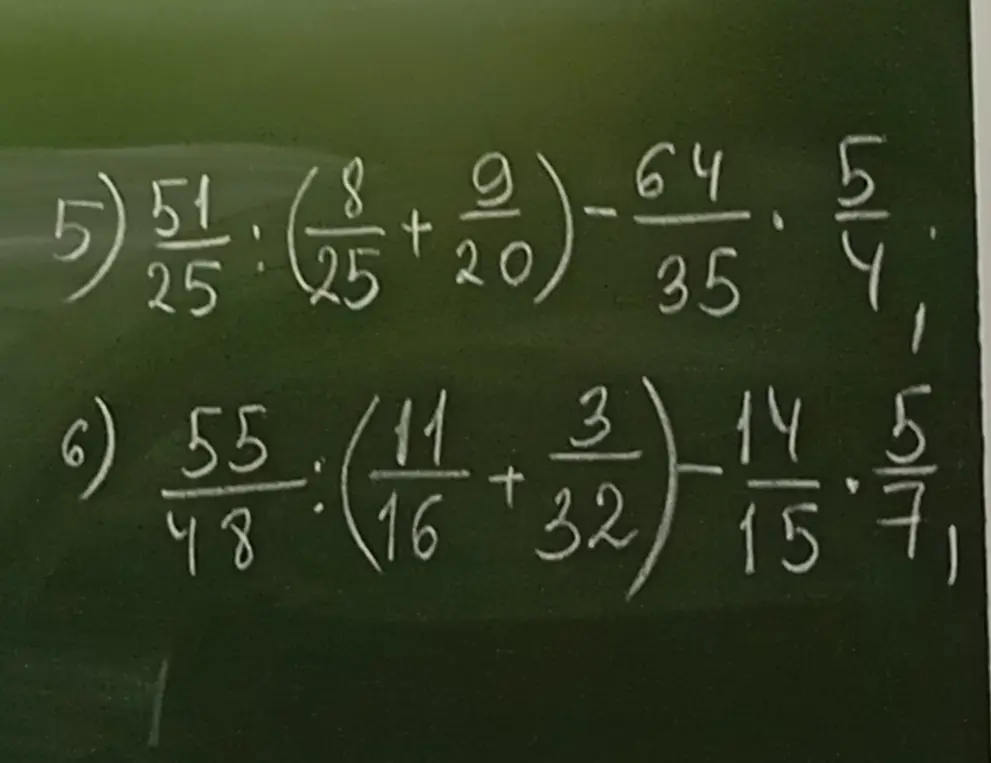 5) 51/25 : (8/25 + 9/20) - 64/35 · 5/4 ;
6) 55/48 : (11/16 + 3/32) - 14/15 · 5/7 ,